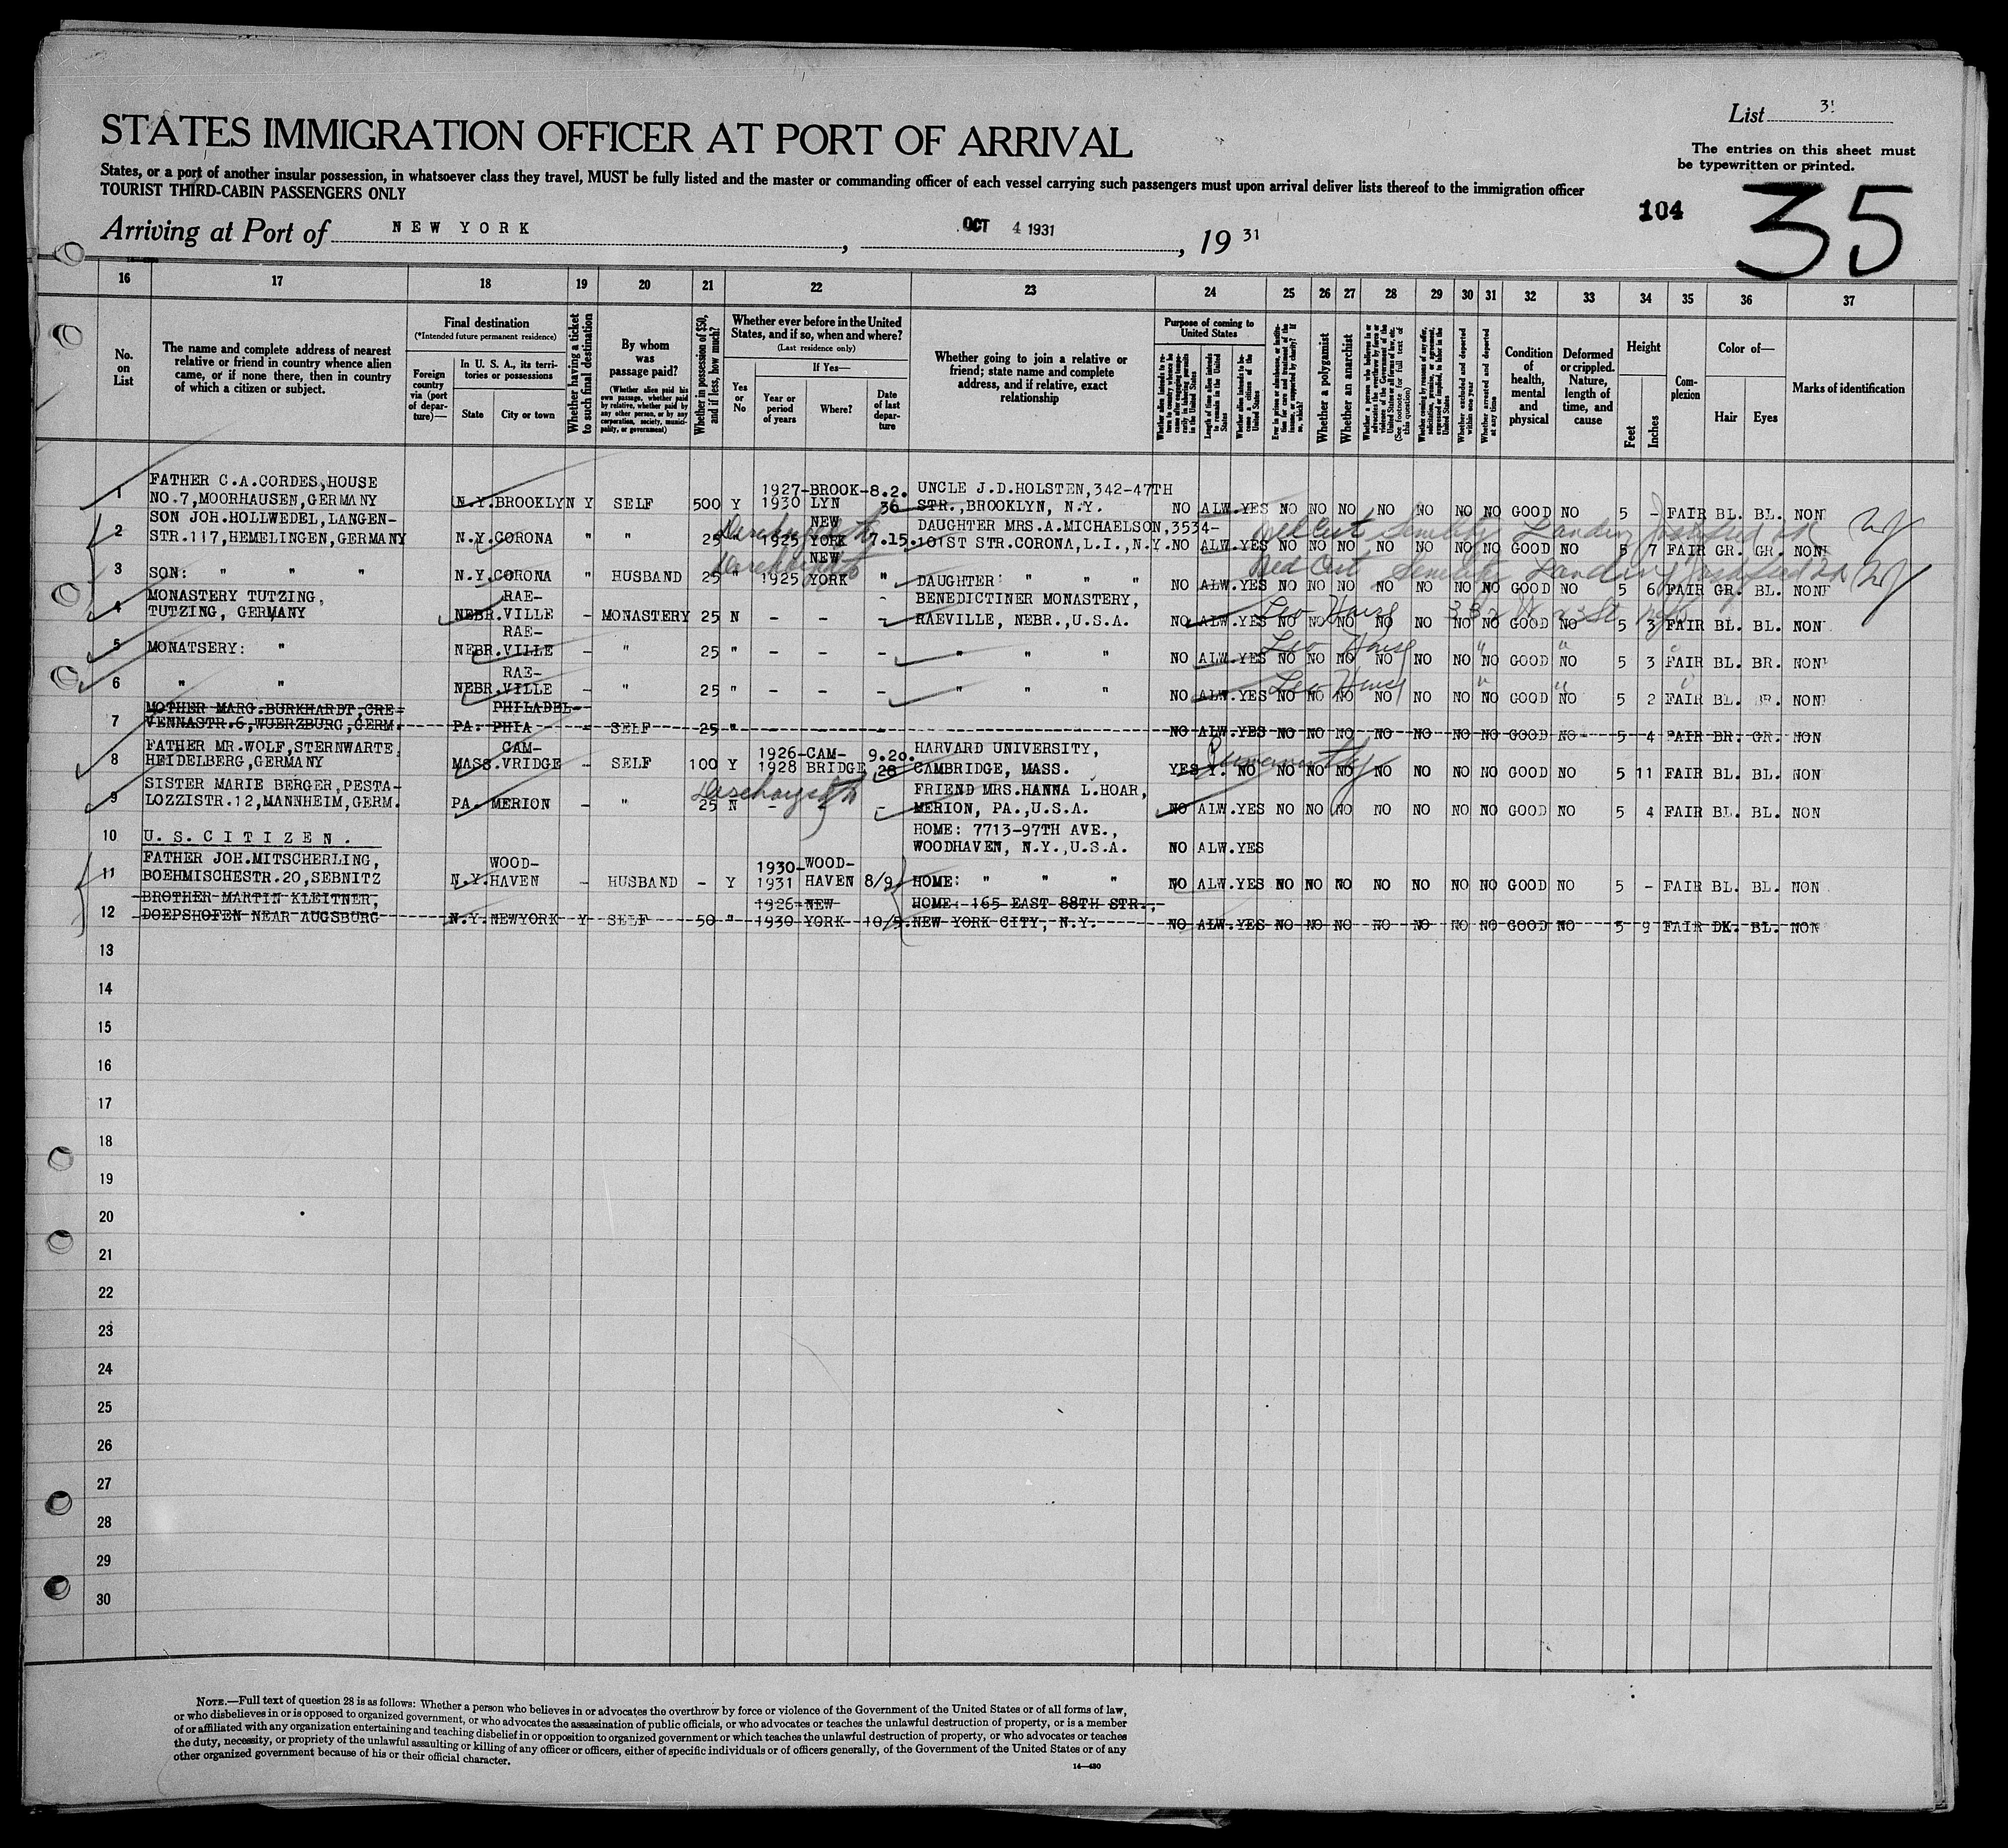 List 31
STATES IMMIGRATION OFFICER AT PORT OF ARRIVAL
The entries on this sheet must
be typewritten or printed.
States, or a port of another insular possession, in whatsoever class they travel, MUST be fully listed and the master or commanding officer of each vessel carrying such passengers must upon arrival deliver lists thereof to the immigration officer
TOURIST THIRD-CABIN PASSENGERS ONLY
104 35
Arriving at Port of NEW YORK, OCT 4 1931, 19 31
16 17 18 19 20 21 22 23 24 25 26 27 28 29 30 31 32 33 34 35 36 37
No. on List
The name and complete address of nearest
relative or friend in country whence alien
came, or if none there, then in country
of which a citizen or subject.
Final destination
(*Intended future permanent residence)
Foreign country via (port of departure)—
In U. S. A., its territories or possessions
State City or town
Whether having a ticket to such final destination
By whom was passage paid?
(Whether alien paid his own passage, whether paid by relative, whether paid by any other person, or by any corporation, society, municipality, or government)
Whether in possession of $50, and if less, how much?
Whether ever before in the United
States, and if so, when and where?
(Last residence only)
Yes or No
If Yes—
Year or period of years
Where?
Date of last departure
Whether going to join a relative or
friend; state name and complete
address, and if relative, exact
relationship
Purpose of coming to
United States
Length of time alien intends to remain in the United States
Whether alien intends to become a citizen of the United States
Whether a polygamist
Whether an anarchist
(See footnote for full text of this question)
Whether excluded and deported within one year
Whether arrested and deported at any time
Condition of health, mental and physical
Deformed or crippled. Nature, length of time, and cause
Height
Feet Inches
Complexion
Color of—
Hair Eyes
Marks of identification
1 FATHER C.A.CORDES,HOUSE
NO.7,MOORHAUSEN,GERMANY N.Y.BROOKLYN Y SELF 500 Y 1927-1930 BROOK-LYN 8.2.36 UNCLE J.D.HOLSTEN,342-47TH
STR.,BROOKLYN, N.Y. NO ALW.YES NO NO NO NO NO NO NO GOOD NO 5 - FAIR BL. BL. NON
2 SON JOH.HOLLWEDEL,LANGEN-
STR.117,HEMELINGEN,GERMANY N.Y.CORONA " " 25 " 1925 NEW YORK 7.15. DAUGHTER MRS.A.MICHAELSON,3534-
101ST STR.CORONA,L.I.,N.Y. NO ALW.YES NO NO NO NO NO NO NO GOOD NO 5 7 FAIR GR. GR. NON
Med Cert Senility Landing
3 SON: " " " N.Y.CORONA " HUSBAND 25 " 1925 NEW YORK " DAUGHTER " " " NO ALW.YES NO NO NO NO NO NO NO GOOD NO 5 6 FAIR GR. BL. NON
Med Cert Senility Landing
4 MONASTERY TUTZING,
TUTZING, GERMANY NEBR. RAE-VILLE - MONASTERY 25 N - - - BENEDICTINER MONASTERY,
RAEVILLE, NEBR.,U.S.A. NO ALW.YES NO NO NO NO NO NO NO GOOD NO 5 3 FAIR BL. BL. NON
Leo House
5 MONATSERY: " NEBR. RAE-VILLE - " 25 " - - - " " " NO ALW.YES NO NO NO NO NO NO NO GOOD NO 5 3 FAIR BL. BR. NON
Leo House " "
6 " " NEBR. RAE-VILLE - " 25 " - - - " " " NO ALW.YES NO NO NO NO NO NO NO GOOD NO 5 2 FAIR BL. BR. NON
Leo House " "
7 MOTHER MARG.BURKHARDT,CRE-
VENNASTR.6,WUERZBURG,GERM. PA. PHILADEL-PHIA - SELF 25 " NO ALW.YES NO NO NO NO NO NO NO GOOD NO 5 4 FAIR BR. GR. NON
8 FATHER MR.WOLF,STERNWARTE,
HEIDELBERG,GERMANY MASS. CAM-VRIDGE - SELF 100 Y 1926-1928 CAM-BRIDGE 9.20.28 HARVARD UNIVERSITY,
CAMBRIDGE, MASS. YES Y. NO NO NO NO NO NO NO NO GOOD NO 5 11 FAIR BL. BL. NON
9 SISTER MARIE BERGER,PESTA-
LOZZISTR.12,MANNHEIM,GERM. PA. MERION - " 25 N - - - FRIEND MRS.HANNA L.HOAR,
MERION, PA.,U.S.A. NO ALW.YES NO NO NO NO NO NO NO GOOD NO 5 4 FAIR BL. BL. NON
10 U.S.CITIZEN. HOME: 7713-97TH AVE.,
WOODHAVEN, N.Y.,U.S.A. NO ALW.YES
11 FATHER JOH.MITSCHERLING,
BOEHMISCHESTR.20,SEBNITZ N.Y. WOOD-HAVEN - HUSBAND - Y 1930-1931 WOOD-HAVEN 8/9 HOME: " " " NO ALW.YES NO NO NO NO NO NO NO GOOD NO 5 - FAIR BL. BL. NON
12 BROTHER MARTIN KLEITNER,
DOEPSHOFEN NEAR AUGSBURG N.Y.NEWYORK Y SELF 50 " 1926-1930 NEW YORK HOME: 165 EAST 88TH STR.,
NEW YORK CITY, N.Y. NO ALW.YES NO NO NO NO NO NO NO GOOD NO 5 9 FAIR DK. BL. NON
13
14
15
16
17
18
19
20
21
22
23
24
25
26
27
28
29
30
NOTE.—Full text of question 28 is as follows: Whether a person who believes in or advocates the overthrow by force or violence of the Government of the United States or of all forms of law,
or who disbelieves in or is opposed to organized government, or who advocates the assassination of public officials, or who advocates or teaches the unlawful destruction of property, or is a member
of or affiliated with any organization entertaining and teaching disbelief in or opposition to organized government or which teaches the unlawful destruction of property, or who advocates or teaches
the duty, necessity, or propriety of the unlawful assaulting or killing of any officer or officers, either of specific individuals or of officers generally, of the Government of the United States or of any
other organized government because of his or their official character.
14—430